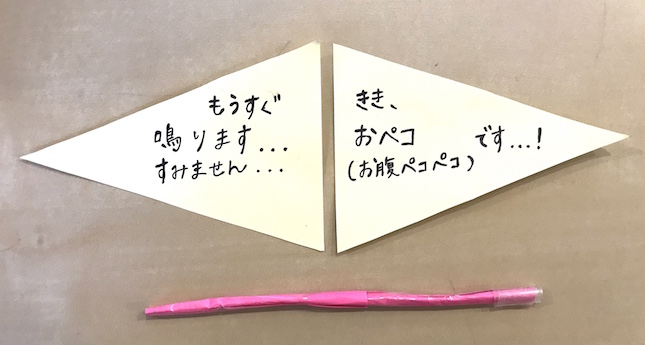 もうすぐ
鳴ります...
すみません...
きき、
おペコ です...!
(お腹ペコペコ)